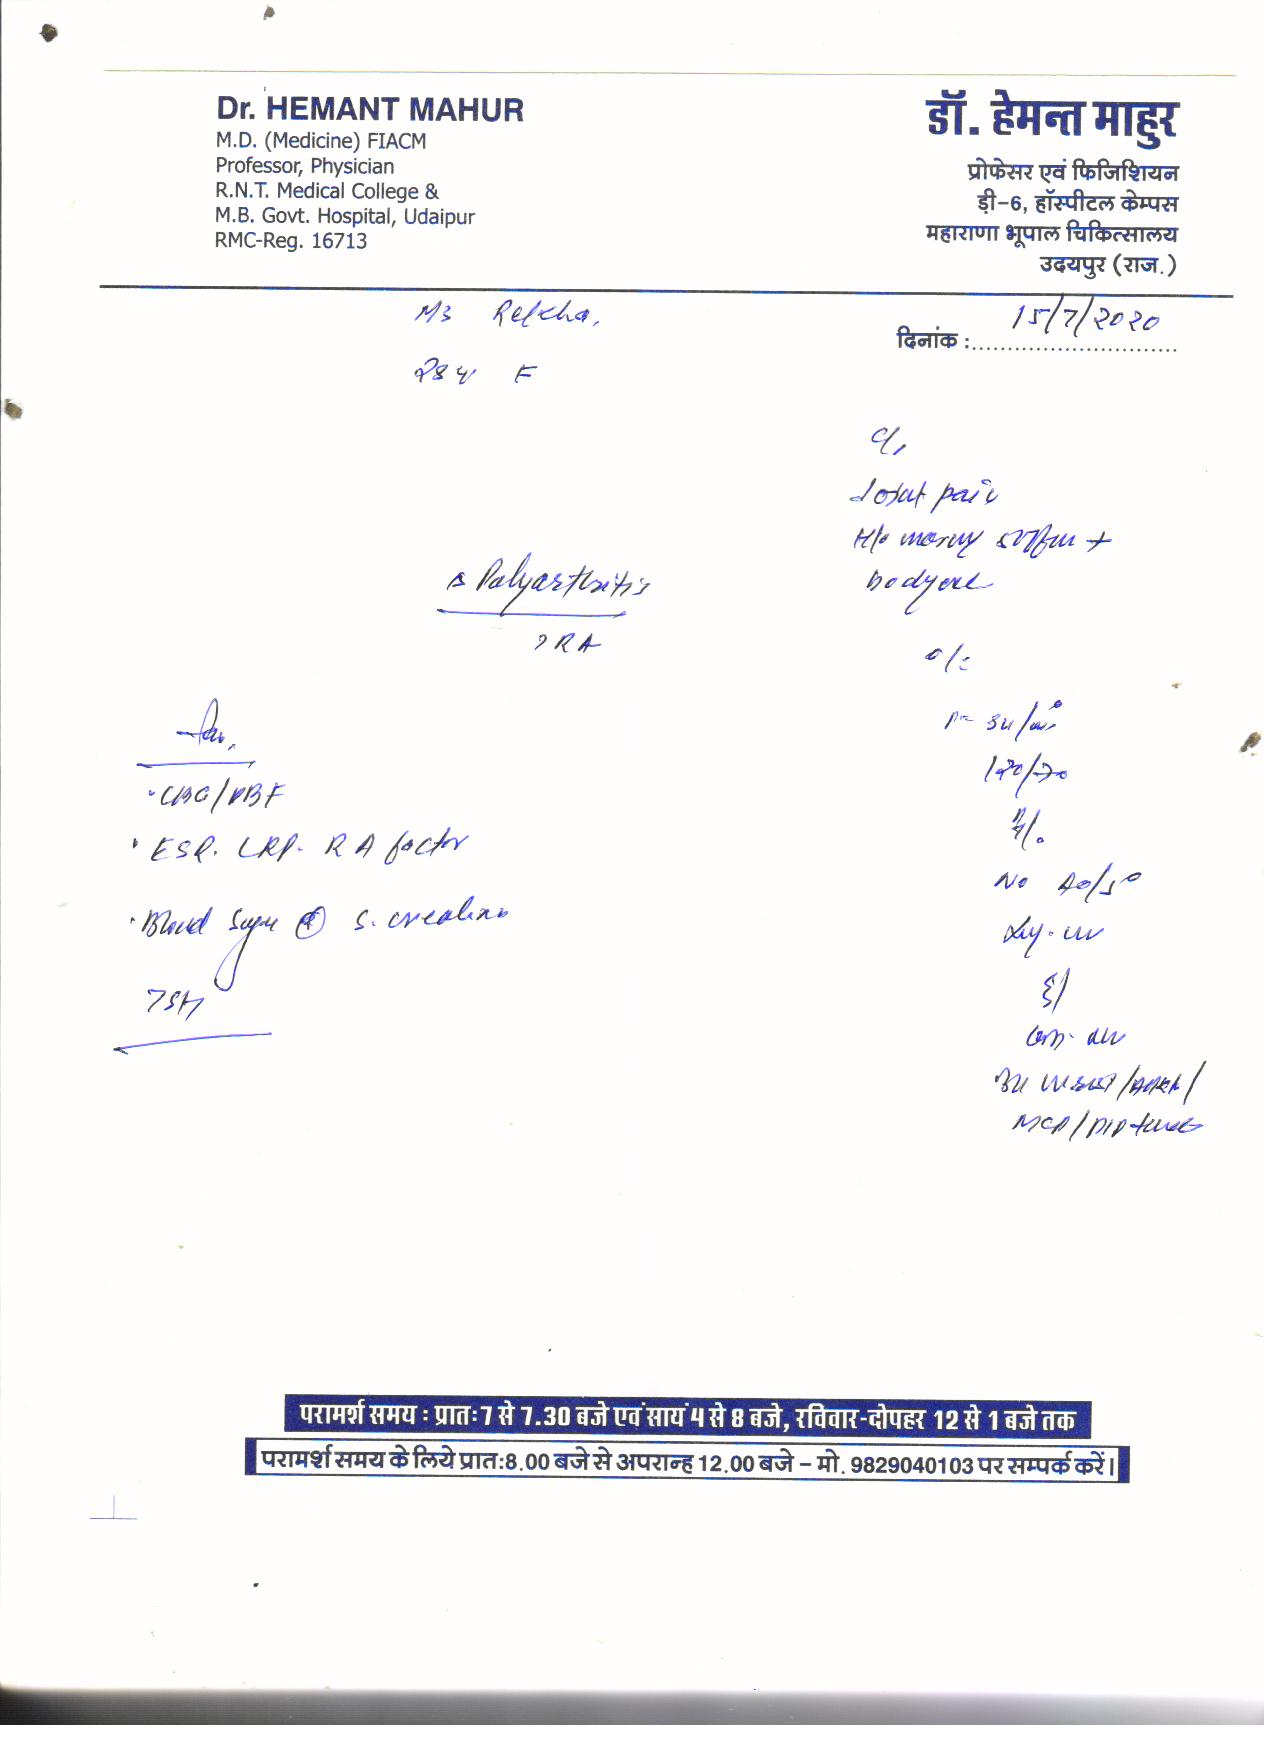 Dr. HEMANT MAHUR
M.D. (Medicine) FIACM
Professor, Physician
R.N.T. Medical College &
M.B. Govt. Hospital, Udaipur
RMC-Reg. 16713
डॉ. हेमन्त माहुर
प्रोफेसर एवं फिजिशियन
ड़ी-6, हॉस्पीटल केम्पस
महाराणा भूपाल चिकित्सालय
उदयपुर (राज.)
Ms Rekha.
दिनांक : 15/7/2020
28 y F
c/,
Joint pain
H/o morning stiffness +
bodyache
Polyarthritis
? RA
o/e
120/70
No
CBC/PBF
ESR. CRP. RA factor
Blood Sugar S. creatinine
TSH
MCP/PIP
परामर्श समय : प्रातः7 से 7.30 बजे एवं सायं 4 से 8 बजे, रविवार-दोपहर 12 से 1 बजे तक
परामर्श समय के लिये प्रात:8.00 बजे से अपरान्ह 12.00 बजे – मो. 9829040103 पर सम्पर्क करें।